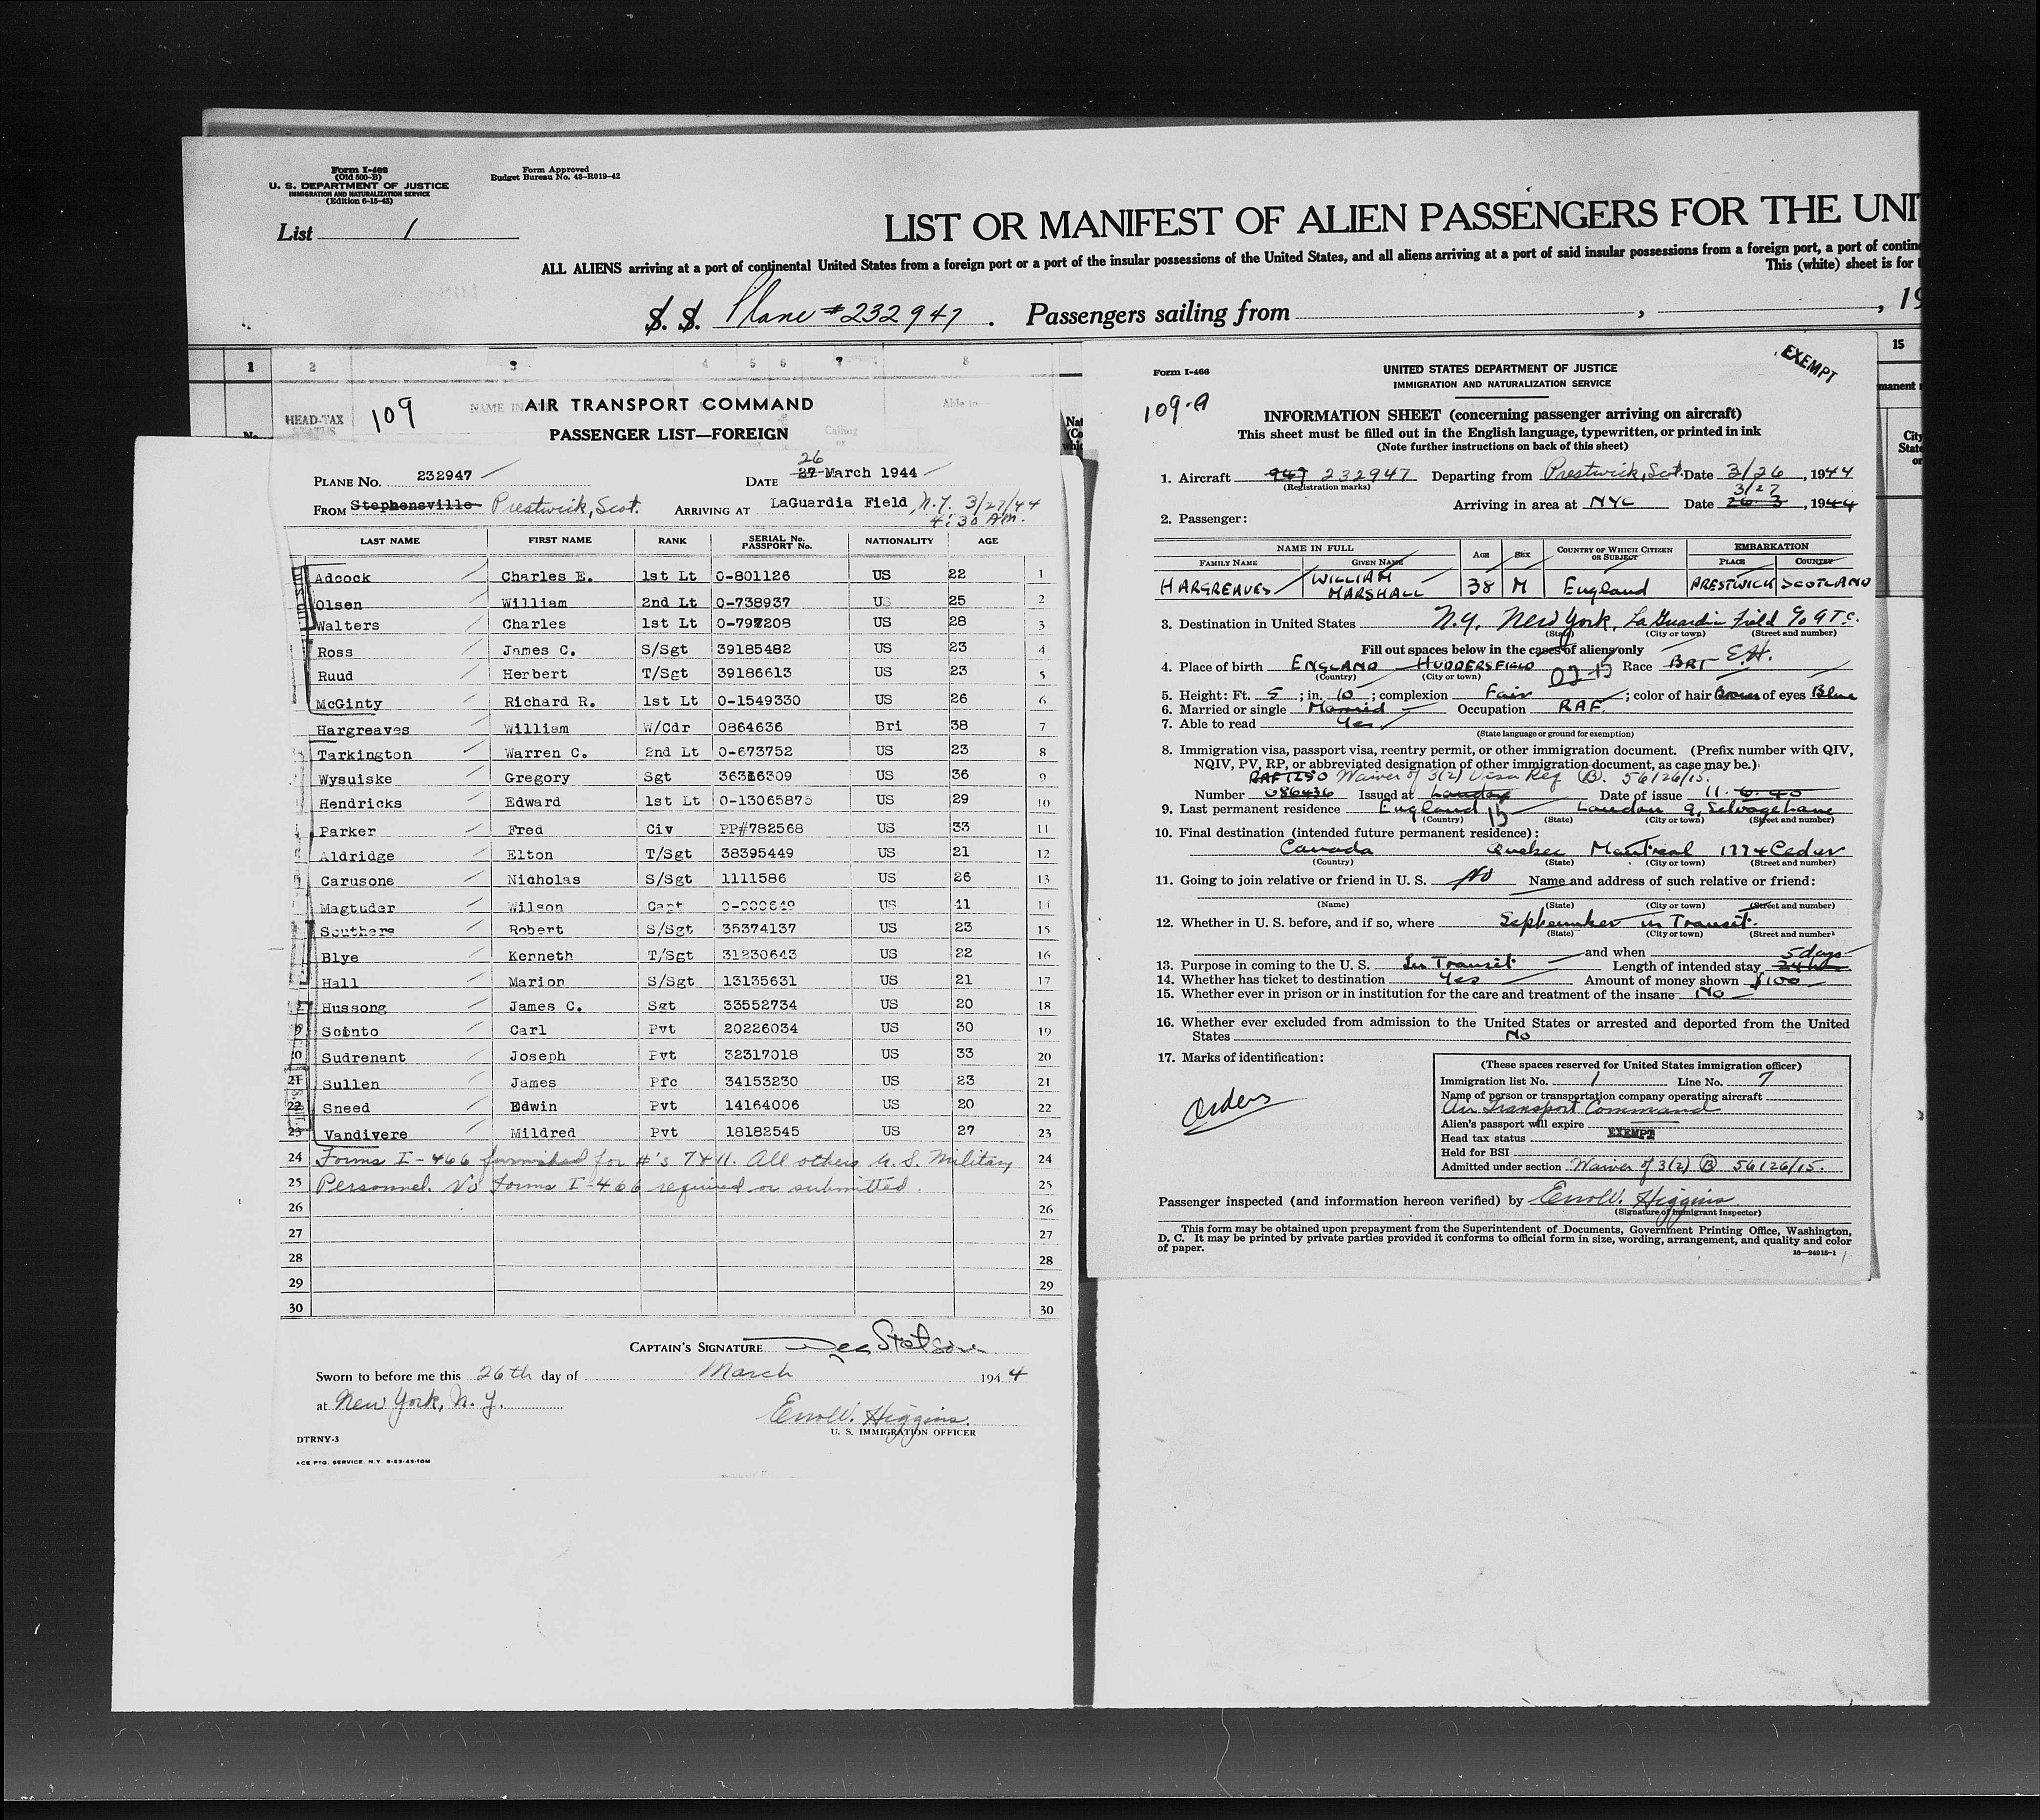 Form I-402
(Old 500-B)
U. S. DEPARTMENT OF JUSTICE
IMMIGRATION AND NATURALIZATION SERVICE
(Edition 6-15-43)
Form Approved
Budget Bureau No. 43-R019-42
List 1
LIST OR MANIFEST OF ALIEN PASSENGERS FOR THE UNI
ALL ALIENS arriving at a port of continental United States from a foreign port or a port of the insular possessions of the United States, and all aliens arriving at a port of said insular possessions from a foreign port, a port of contin
This (white) sheet is for
S. S. Plane #232947. Passengers sailing from , , 19
1 2 3 4 5 6 7 8
HEAD-TAX
STATUS
NAME IN
Able to
No.
109
AIR TRANSPORT COMMAND
PASSENGER LIST—FOREIGN
PLANE No. 232947 DATE 27 26 March 1944
FROM Stephensville Prestwick, Scot. ARRIVING AT LaGuardia Field, N.Y. 3/27/44
4:30 AM.
LAST NAME FIRST NAME RANK SERIAL No. PASSPORT No. NATIONALITY AGE
Adcock Charles E. 1st Lt O-801126 US 22 1
Olsen William 2nd Lt O-738937 US 25 2
Walters Charles 1st Lt O-797208 US 28 3
Ross James C. S/Sgt 39185482 US 23 4
Ruud Herbert T/Sgt 39186613 US 23 5
McGinty Richard R. 1st Lt O-1549330 US 26 6
Hargreaves William W/Cdr 0864636 Bri 38 7
Tarkington Warren C. 2nd Lt O-673752 US 23 8
Wysuiske Gregory Sgt 36316309 US 36 9
Hendricks Edward 1st Lt O-13065875 US 29 10
Parker Fred Civ PP#782568 US 33 11
Aldridge Elton T/Sgt 38395449 US 21 12
Carusone Nicholas S/Sgt 1111586 US 26 13
Magtuder Wilson Capt O-900649 US 41 14
Southers Robert S/Sgt 35374137 US 23 15
Blye Kenneth T/Sgt 31230643 US 22 16
Hall Marion S/Sgt 13135631 US 21 17
Hussong James C. Sgt 33552734 US 20 18
Scinto Carl Pvt 20226034 US 30 19
20 Sudrenant Joseph Pvt 32317018 US 33 20
21 Sullen James Pfc 34153230 US 23 21
22 Sneed Edwin Pvt 14164006 US 20 22
23 Vandivere Mildred Pvt 18182545 US 27 23
24 Forms I-466 furnished for #'s 7 & 11. All others U.S. Military 24
25 Personnel. No Forms I-466 required or submitted. 25
26 26
27 27
28 28
29 29
30 30
CAPTAIN'S SIGNATURE
Sworn to before me this 26th day of March 1944
at New York, N.Y.
Errol V. Higgins
U. S. IMMIGRATION OFFICER
DTRNY-3
ACE PTG. SERVICE. N.Y. 8-23-43-10M
15
manent
City
State
or
EXEMPT
Form I-466
109-A
UNITED STATES DEPARTMENT OF JUSTICE
IMMIGRATION AND NATURALIZATION SERVICE
INFORMATION SHEET (concerning passenger arriving on aircraft)
This sheet must be filled out in the English language, typewritten, or printed in ink
(Note further instructions on back of this sheet)
1. Aircraft 947 232947 Departing from Prestwick, Scot. Date 3/26, 1944
(Registration marks)
Arriving in area at NYC Date 3/27 26-3, 1944
2. Passenger:
NAME IN FULL AGE SEX COUNTRY OF WHICH CITIZEN OR SUBJECT EMBARKATION
FAMILY NAME GIVEN NAME PLACE COUNTRY
HARGREAVES WILLIAM MARSHALL 38 M England PRESTWICK SCOTLAND
3. Destination in United States N.Y. New York, La Guardia Field c/o A.T.C.
(State) (City or town) (Street and number)
Fill out spaces below in the cases of aliens only
4. Place of birth ENGLAND HUDDERSFIELD Race BRT E.H.
(Country) (City or town)
5. Height: Ft. 5; in. 10; complexion Fair; color of hair Brown of eyes Blue
6. Married or single Married Occupation RAF.
7. Able to read Yes
(State language or ground for exemption)
8. Immigration visa, passport visa, reentry permit, or other immigration document. (Prefix number with QIV,
NQIV, PV, RP, or abbreviated designation of other immigration document, as case may be.)
RAF 1250 Waiver of 3(2) Visa Reg (B). 56126/15.
Number 086436 Issued at London Date of issue 11.6.40
9. Last permanent residence England London 9, Selvage Lane
(Country) (State) (City or town) (Street and number)
10. Final destination (intended future permanent residence):
Canada Quebec Montreal 1774 Cedar
(Country) (State) (City or town) (Street and number)
11. Going to join relative or friend in U. S. No Name and address of such relative or friend:
(Name) (State) (City or town) (Street and number)
12. Whether in U. S. before, and if so, where September in Transit.
(State) (City or town) (Street and number)
and when
13. Purpose in coming to the U. S. In Transit Length of intended stay 5 days
14. Whether has ticket to destination Yes Amount of money shown $100
15. Whether ever in prison or in institution for the care and treatment of the insane No
16. Whether ever excluded from admission to the United States or arrested and deported from the United
States No
17. Marks of identification:
Orders
(These spaces reserved for United States immigration officer)
Immigration list No. 1 Line No. 7
Name of person or transportation company operating aircraft
Air Transport Command
Alien's passport will expire
Head tax status EXEMPT
Held for BSI
Admitted under section Waiver of 3(2) (B) 56126/15.
Passenger inspected (and information hereon verified) by Errol V. Higgins
(Signature of immigrant inspector)
This form may be obtained upon prepayment from the Superintendent of Documents, Government Printing Office, Washington,
D. C. It may be printed by private parties provided it conforms to official form in size, wording, arrangement, and quality and color
of paper.
16—24915-1